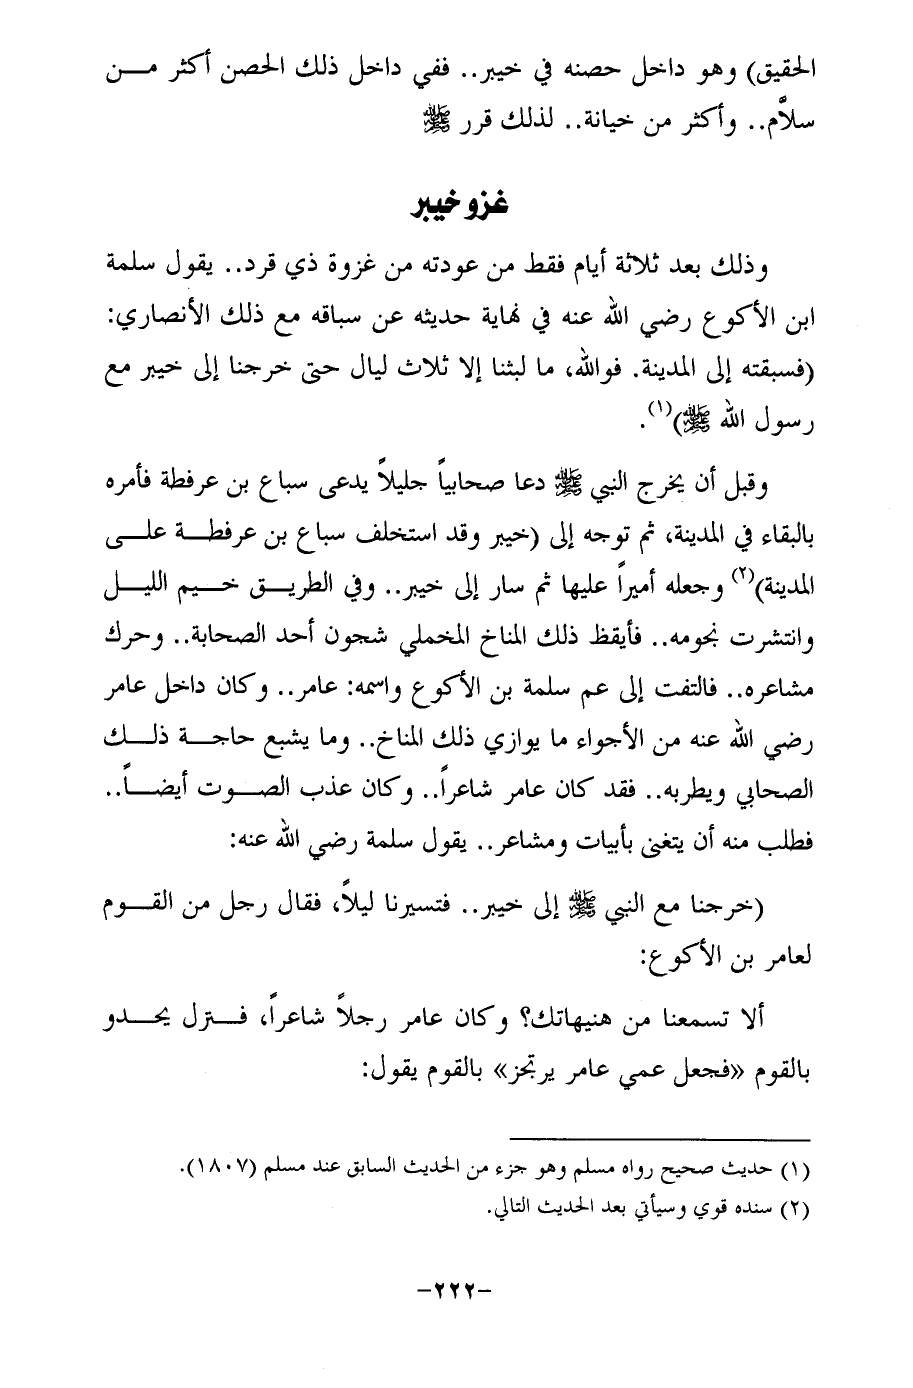 الحقيق) وهو داخل حصنه في خيبر.. ففي داخل ذلك الحصن أكثر مــن
سلاَّم.. وأكثر من خيانة.. لذلك قرر ﷺ
غزو خيبر
وذلك بعد ثلاثة أيام فقط من عودته من غزوة ذي قرد.. يقول سلمة
ابن الأكوع رضي الله عنه في نهاية حديثه عن سباقه مع ذلك الأنصاري:
(فسبقته إلى المدينة. فوالله، ما لبثنا إلا ثلاث ليال حتى خرجنا إلى خيبر مع
رسول الله ﷺ)(١).
وقبل أن يخرج النبي ﷺ دعا صحابياً جليلاً يدعى سباع بن عرفطة فأمره
بالبقاء في المدينة، ثم توجه إلى (خيبر وقد استخلف سباع بن عرفطــة علــى
المدينة)(٢) وجعله أميراً عليها ثم سار إلى خيبر.. وفي الطريــق خــيم الليــل
وانتشرت نجومه.. فأيقظ ذلك المناخ المخملي شجون أحد الصحابة.. وحرك
مشاعره.. فالتفت إلى عم سلمة بن الأكوع واسمه: عامر.. وكان داخل عامر
رضي الله عنه من الأجواء ما يوازي ذلك المناخ.. وما يشبع حاجــة ذلــك
الصحابي ويطربه.. فقد كان عامر شاعراً.. وكان عذب الصــوت أيضــاً..
فطلب منه أن يتغنى بأبيات ومشاعر.. يقول سلمة رضي الله عنه:
(خرجنا مع النبي ﷺ إلى خيبر.. فتسيرنا ليلاً، فقال رجل من القــوم
لعامر بن الأكوع:
ألا تسمعنا من هنيهاتك؟ وكان عامر رجلاً شاعراً، فــنزل يحــدو
بالقوم «فجعل عمي عامر يرتجز» بالقوم يقول:
(١) حديث صحيح رواه مسلم وهو جزء من الحديث السابق عند مسلم (١٨٠٧).
(٢) سنده قوي وسيأتي بعد الحديث التالي.
-٢٢٢-